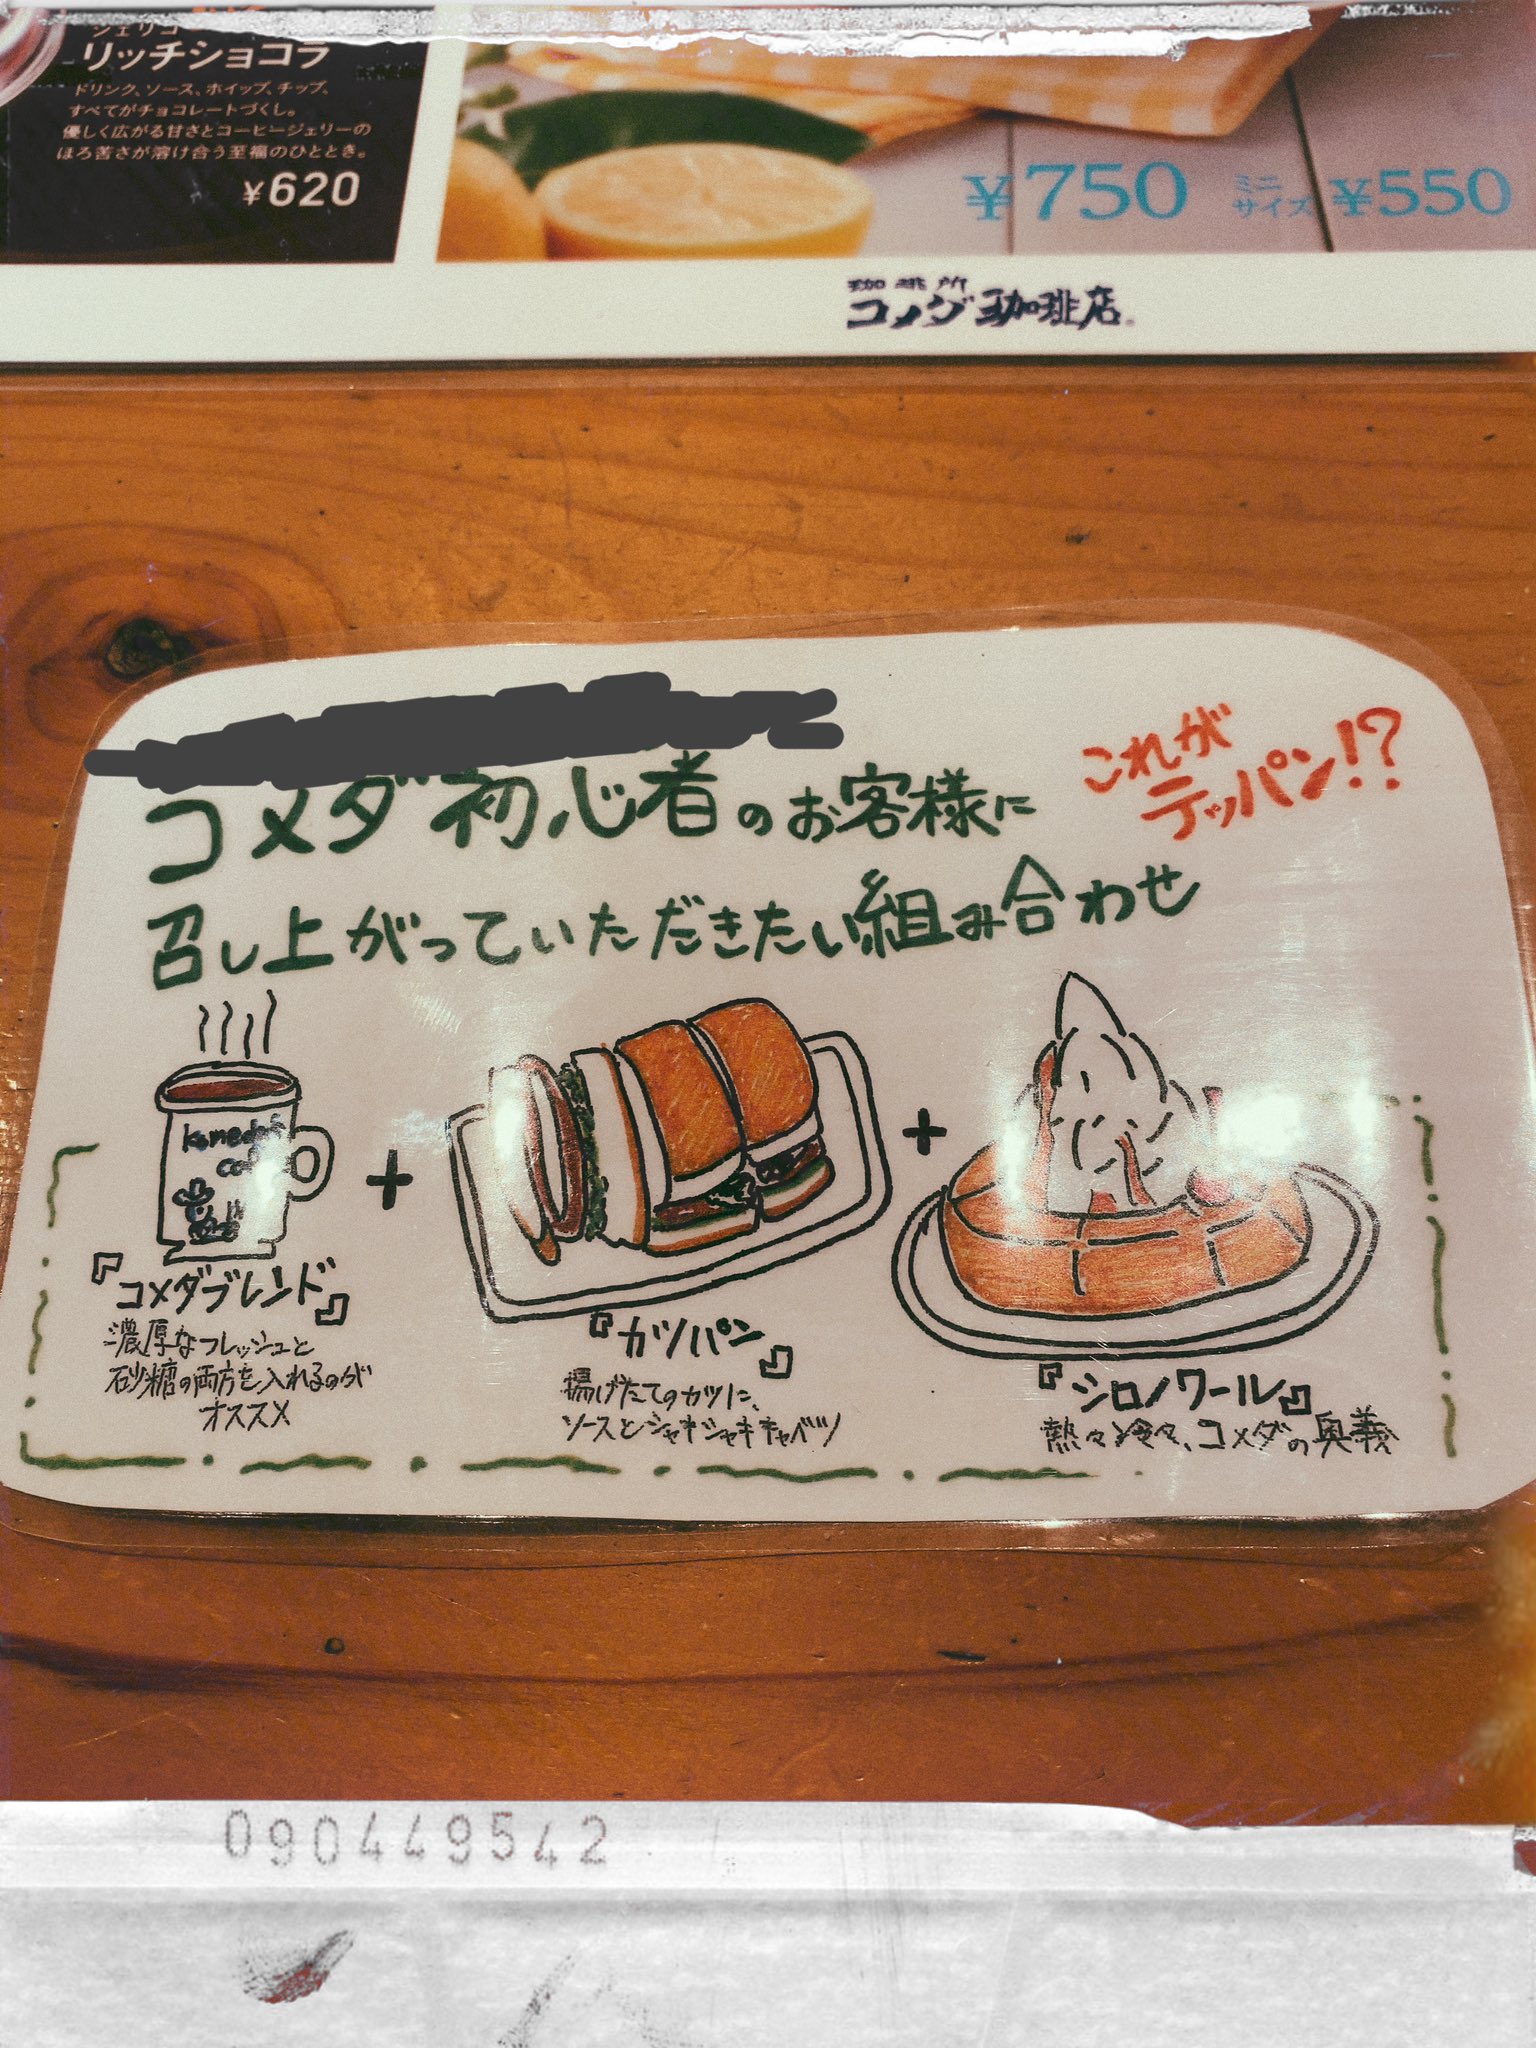 ジェリコ
リッチショコラ
ドリンク、ソース、ホイップ、チップ、
すべてがチョコレートづくし。
優しく広がる甘さとコーヒージェリーの
ほろ苦さが溶け合う至福のひととき。
¥620
¥750 ミニサイズ ¥550
珈琲所
コメダ珈琲店
コメダ初心者のお客様に
召し上がっていただきたい組み合わせ
これが
テッパン!?
komeda's
coffee
+
+
『コメダブレンド』
濃厚なフレッシュと
砂糖の両方を入れるのが
オススメ
『カツパン』
揚げたてのカツに、
ソースとシャキシャキキャベツ
『シロノワール』
熱々冷々、コメダの奥義
090449542